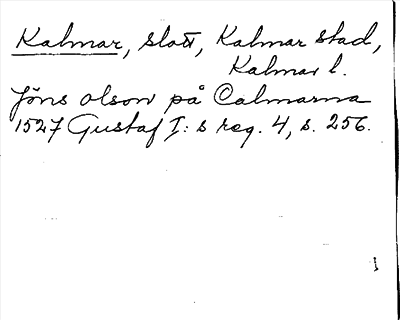 Kalmar, slott, Kalmar stad,
Kalmar l.
Jöns olson på Calmarna
1527 Gustaf I:s reg. 4, s. 256.